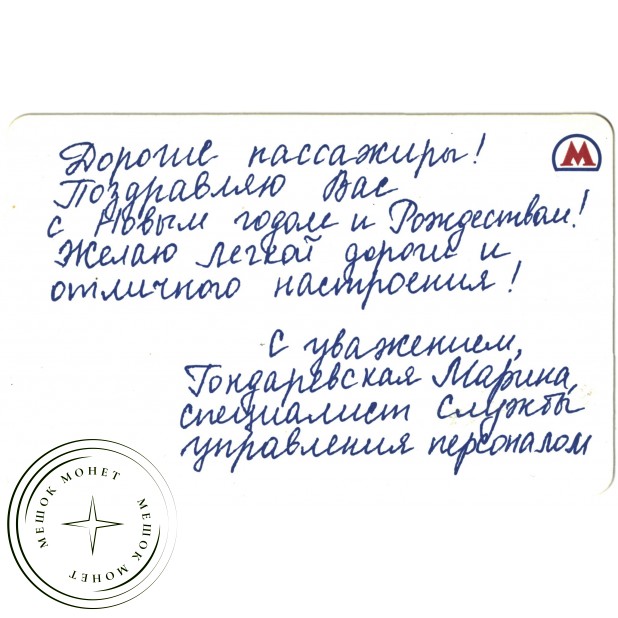 Дорогие пассажиры!
М
Поздравляю Вас
с Новым годом и Рождеством!
Желаю легкой дороги и
отличного настроения!
С уважением,
Гондаревская Марина,
специалист Службы
управления персоналом
МЕШОК МОНЕТ
МЕШОК МОНЕТ